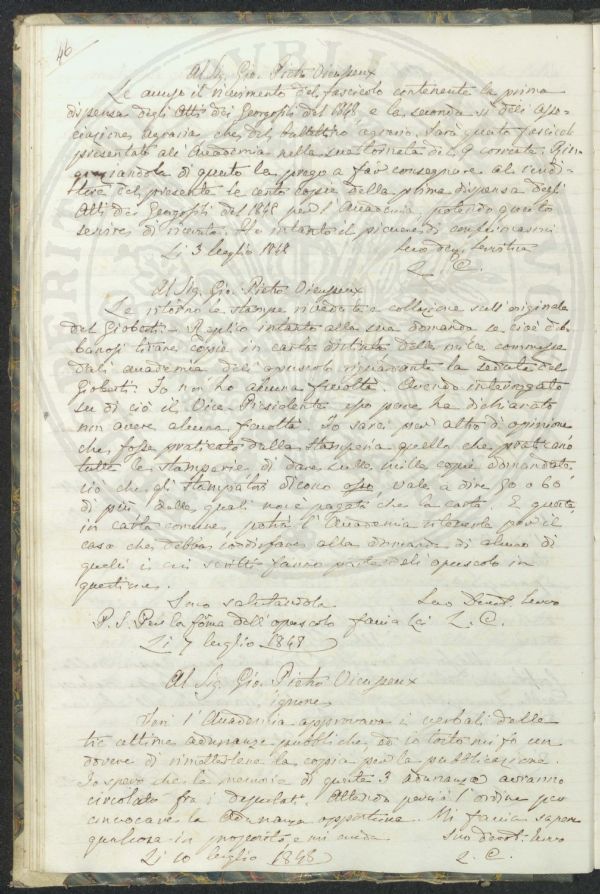 46
Al Sig. Gio. Pietro Vieusseux
Le accuso il ricevimento del fascicolo contenente la prima
dispensa degli Atti dei Georgofili del 1848 e la seconda sì dell'Asso-
ciazione agraria che del bullettino agrario. Sarà questo fascicolo
presentato all'Accademia nella sua tornata del 9 corrente. Rin-
graziandola di questo la prego a far consegnare al
del presente le cento copie della prima dispensa degli
Atti dei Georgofili del 1848 per l'Accademia, potendo questo
servire di ricevuta. Ho intanto il piacere di confermarmi
Li 3 luglio 1848 Suo dev. servitore
L. C.
Al Sig. Gio. Pietro Vieusseux
Le ritorno le stampe rivedute e collazionate sull'originale
del Gioberti. Replico intanto alla sua domanda se cioè deb-
bansi tirare copie in carta distinta delle mille commesse
dall'accademia dell'opuscolo riguardante la seduta del
Gioberti. Io non ho alcuna facoltà. Avendo interrogato
su di ciò il Vice Presidente esso pure ha dichiarato
non avere alcuna facoltà. Io sarei per altro di opinione
che fosse praticato dalla Stamperia quello che praticano
tutte le stamperie, di dare sulle mille copie domandate
ciò che gli stampatori dicono vale a dire 50 o 60
di più delle quali non è pagato che la carta. E queste
in carta comune, potrà l'Accademia ritenerle per il
caso che debba soddisfare alla domanda di alcuno di
quelli i cui scritti fanno parte dell'opuscolo in
questione.
Sono salutandola Suo Devot. servo
P. S. Per la forma dell'opuscolo faccia Lei L. C.
Li 7 luglio 1848
Al Sig. Gio. Pietro Vieusseux
Signore
Ieri l'Accademia approvava i verbali delle
tre ultime adunanze pubbliche, ed io tosto mi fo un
dovere di rimettergliene la copia per la pubblicazione.
Io spero che le memorie di queste 3 adunanze avranno
circolato fra i deputati. Attendo perciò l'ordine per
convocare la adunanza opportuna. Mi faccia sapere
qualcosa in proposito e mi creda Suo devot. servo
Li 10 luglio 1848 L. C.